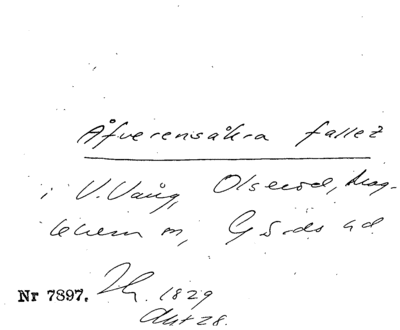 Åfverensåkra fallet
i V. Vång, Olserød, Mag-
lehem m, Gärds hd
Nr 7897. 1829
Akt 28.